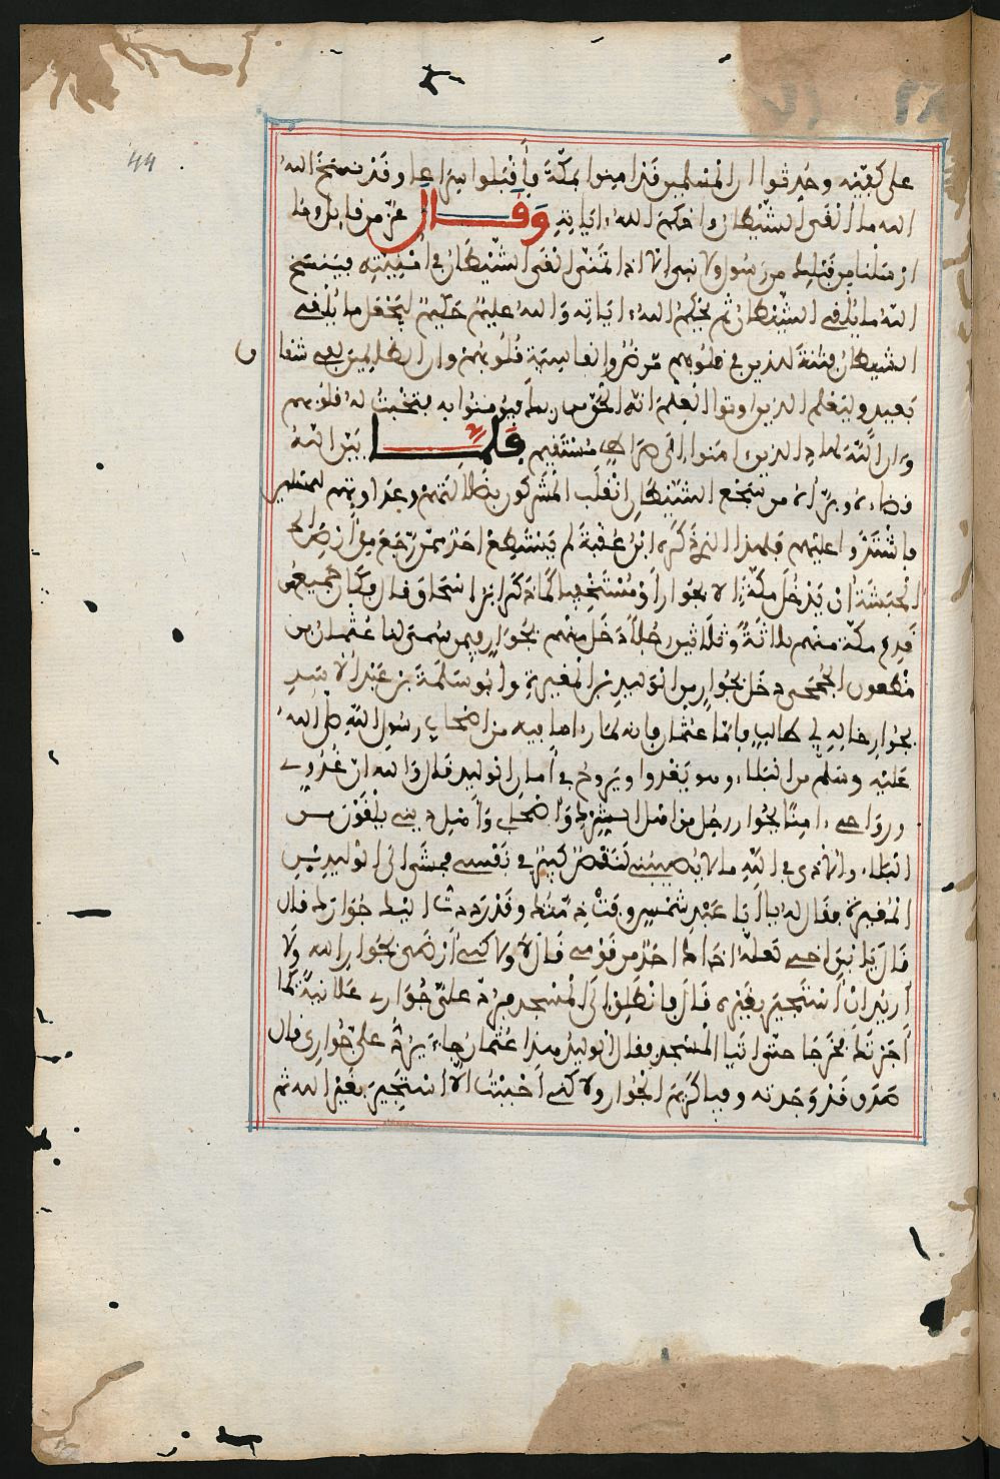 على كفيه وحدثوا ان المسلمين قد امنوا بمكة فأقبلوا سراعا وقد نسخ الله
الله ما القى الشيطان واحكم الله ءاياته وقال عز من قايل وما
ارسلنا من قبلك من رسول ولا نبى الا اذا تمنى القى الشيطان في امنيته فينسخ
الله ما يلقى الشيطان ثم يحكم الله ءاياته والله عليم حكيم ليجعل ما يلقى
الشيطان فتنة للذين في قلوبهم مرض والقاسية قلوبهم وان الظلمين لفى شقا ق
بعيد وليعلم الذين اوتوا العلم انه الحق من ربك فيومنوا به فتخبت له قلوبهم
وان الله لهاد الذين ءامنوا الى صراط مستقيم فلما بين الله
قضاءه وبرأه من سجع الشيطان انقلب المشركون بضلالتهم وعداوتهم للمسلمين
فاشتدوا عليهم فلهذا الذي ذكره ابن عقبة لم يستطع احد ممن رجع من ارض
الحبشة ان يدخل مكة الا بجوار أو مستخفيا كما ذكر ابن اسحاق وقال فكان جميع من
قدم مكة منهم ثلاثة وثلاثين رجلا دخل منهم بجوار فيمن سمى لنا عثمان بن
مظعون الجمحى دخل بجوار من الوليد بن المغيرة وابو سلمة بن عبد الاسد
بجوار خاله ابي طالب فاما عثمان فانه لما رءا ما فيه من اصحاب رسول الله صلى الله
عليه وسلم من البلاء وهو يغدوا ويروح في امان الوليد قال والله ان غدوي
ورواحى ءامنا بجوار رجل من اهل الشرك واصحابي واهل ديني يلقون من
البلاء والاذى في الله ما لا يصيبني لنقص كبير في نفسي فمشى الى الوليد بن
المغيرة فقال له يا ابا عبد شمس وفت ذمتك وقد رددت اليك جوارك قال
قال يا ابن اخى لعله ءاذاك احد من قومى قال لا ولاكني أرضى بجوار الله ولا
أريد ان أستجير بغيره قال فانطلق الى المسجد فرد على جواري علانية كما
أجرتك فخرجا حتى اتيا المسجد فقال الوليد هذا عثمان جاء يرد على جواري قال
صدق قد وجدته وفيا كريم الجوار ولاكنى احببت الا استجير بغير الله ثم